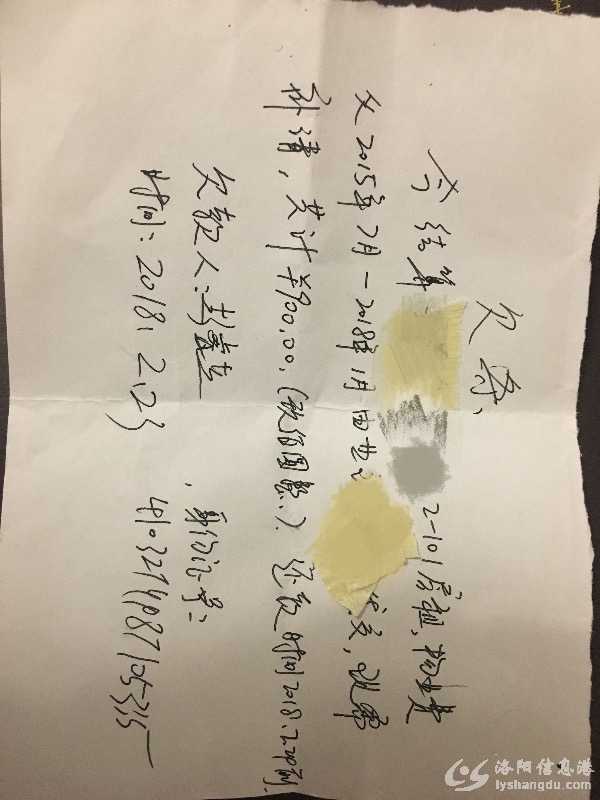 欠条、
今结算 2-101房租,物业费
2015年7月-2018年1月由 代交,现需
补清,共计¥900.00.(玖佰圆整)还款时间2018.2.28前.
欠款人:
时间:2018.2.23
身份证号:
洛阳信息港
lyshangdu.com